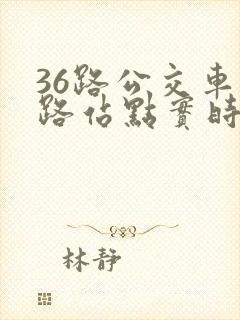 36路公交車
路佔點實時
林靜